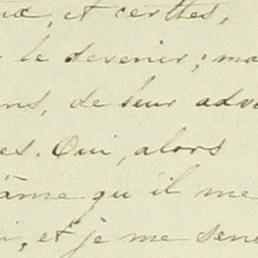 et certes,
le devenir; ma
ns, de leur adve
es. Oui, alors
âme qu'il me
, et je me sens